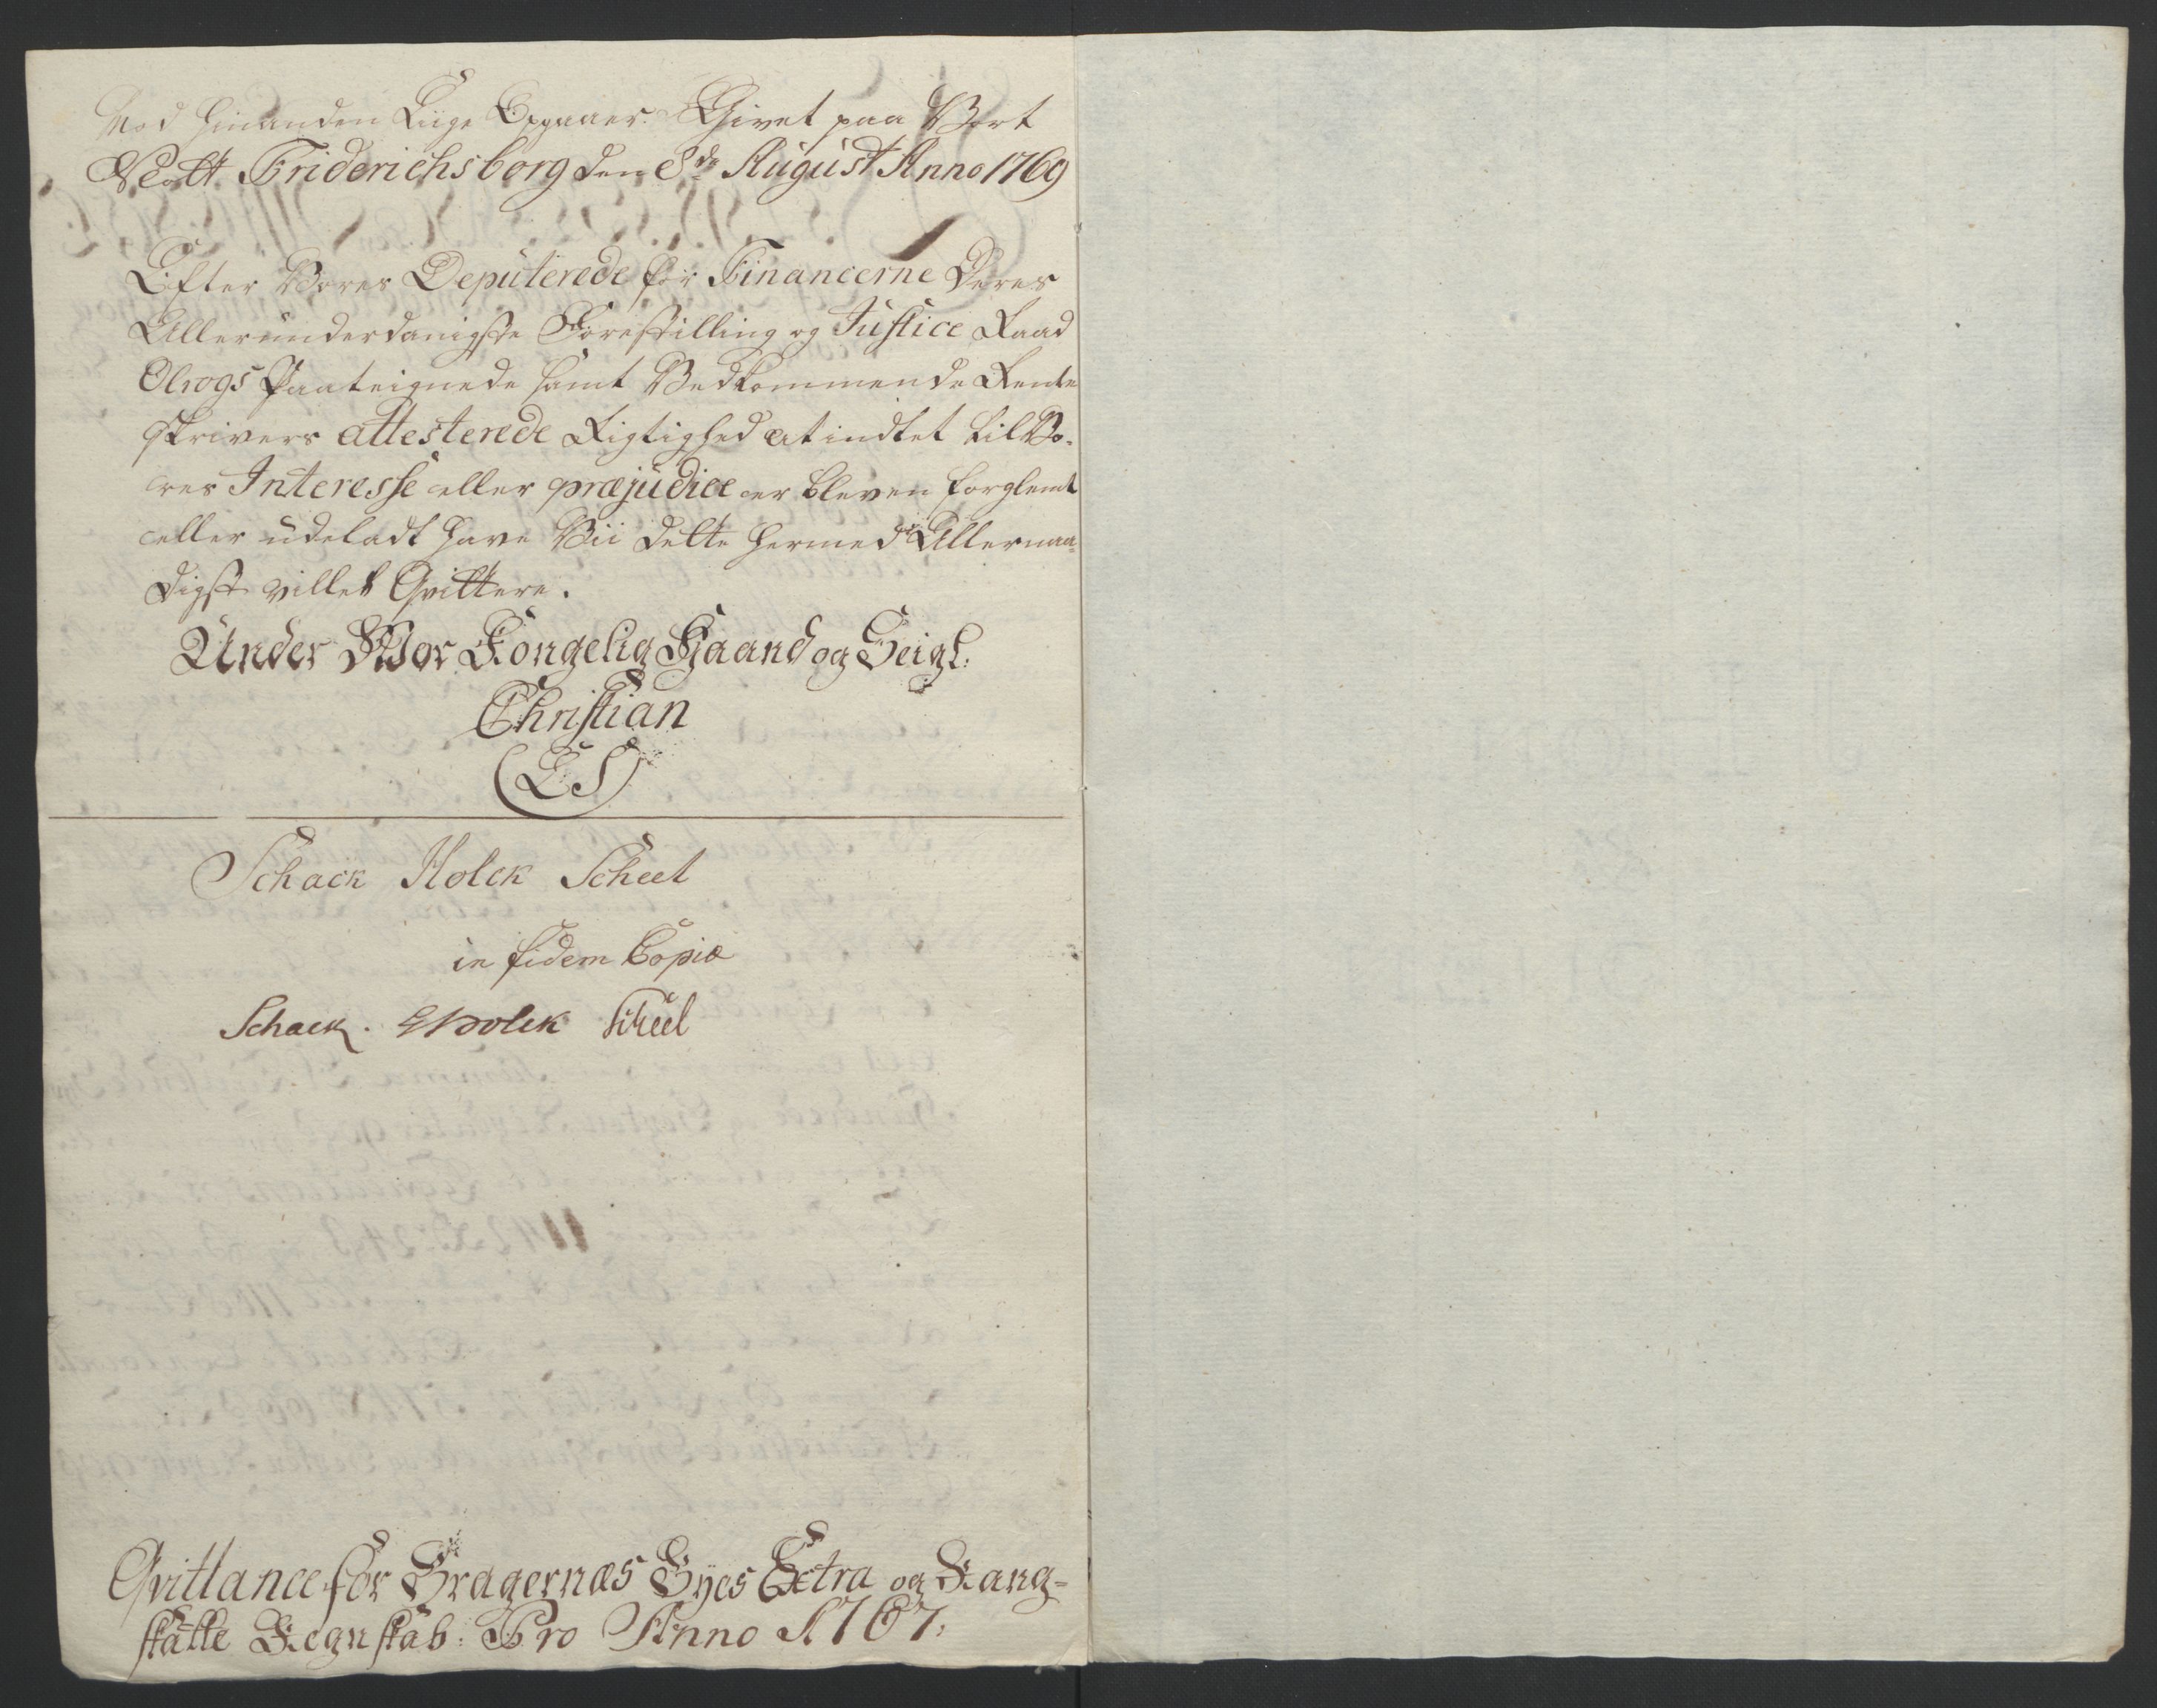 Mod hinanden Liige Opgaaer. Givet paa Vort
Slott Friderichsborg den 8de August Anno 1769
Efter Vores Deputerede for Financerne Deres
Allerunderdanigste Forestilling og Justice Raad
Olrogs Paateignede samt Vedkommende Rente
skrivers attesterede Rigtighed at indtet til Vo-
res Interesse eller præjudice er bleven forglemt
eller udeladt have Vii dette hermed Allernaa-
digst villet Qvittere.
Under Vor Kongelig Haand og Seigl.
Christian
(LS)
Schack Holck Scheel
in fidem Copiæ
Schack. Holck Scheel
Qvittance for Bragernæs Byes Extra og Rang-
skatte Regnskab. Pro Anno 1767.